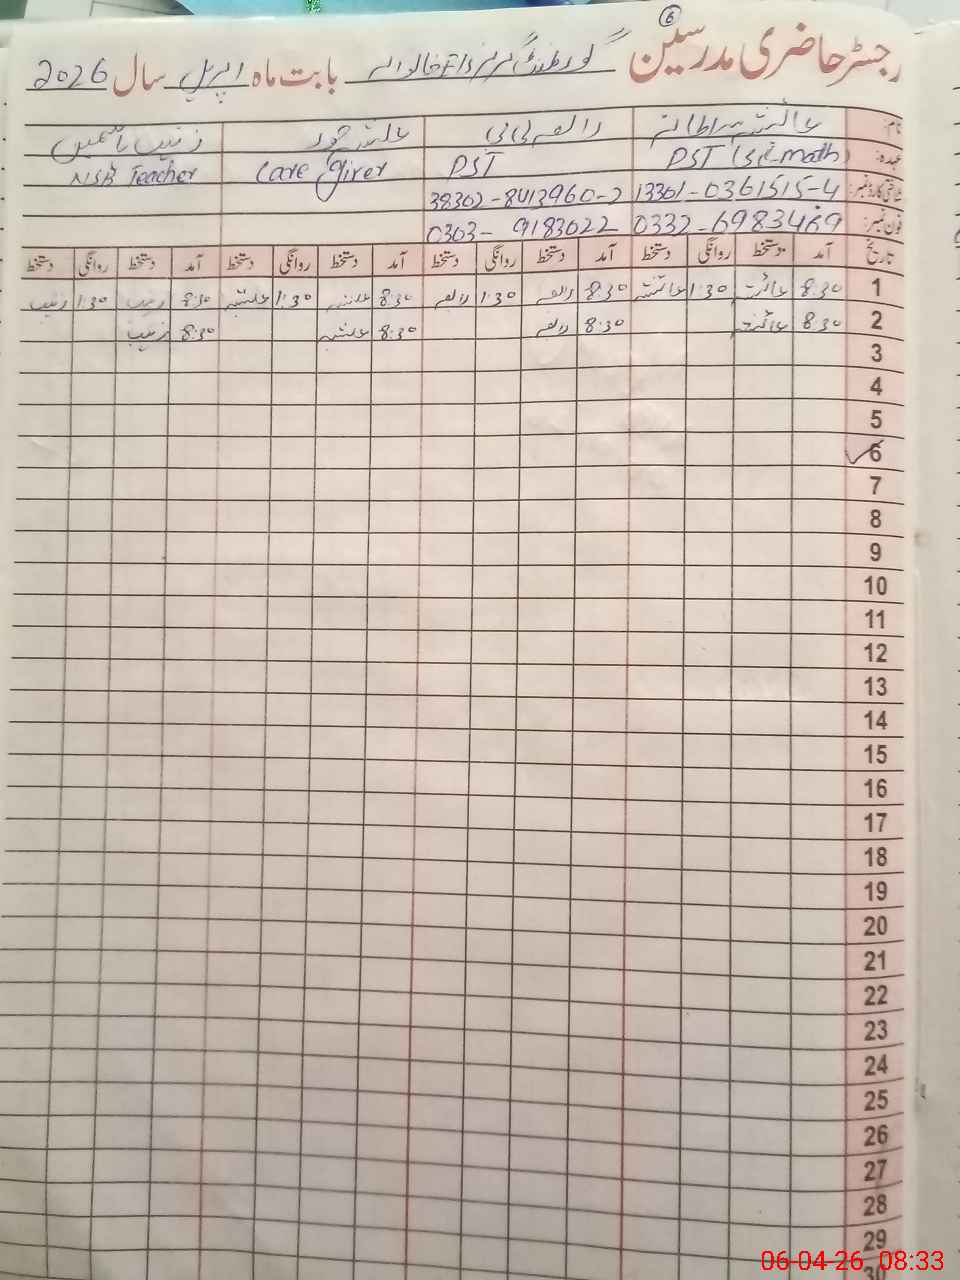 6
رجسٹر حاضری مدرسین گورنمنٹ گرلز F/S خالوالہ بابت ماہ اپریل سال 2026
نام: عائشہ سلطانہ رالعہ بی بی عائشہ زینب یاسمین
عہدہ: PST (Sci-math) PST Care Giver NSB Teacher
شناختی کارڈ نمبر: 13301-0361515-4 38302-8413960-2
فون نمبر: 0332-6983469 0303-9183022
تاریخ آمد دستخط روانگی دستخط آمد دستخط روانگی دستخط آمد دستخط روانگی دستخط آمد دستخط روانگی دستخط
1 8:30 عائشہ 1:30 عائشہ 8:30 رالعہ 1:30 رالعہ 8:30 عائشہ 1:30 عائشہ 8:30 زینب 1:30 زینب
2 8:30 عائشہ 8:30 رالعہ 8:30 عائشہ 8:30 زینب
3
4
5
6
7
8
9
10
11
12
13
14
15
16
17
18
19
20
21
22
23
24
25
26
27
28
29
30
06-04-26 08:33